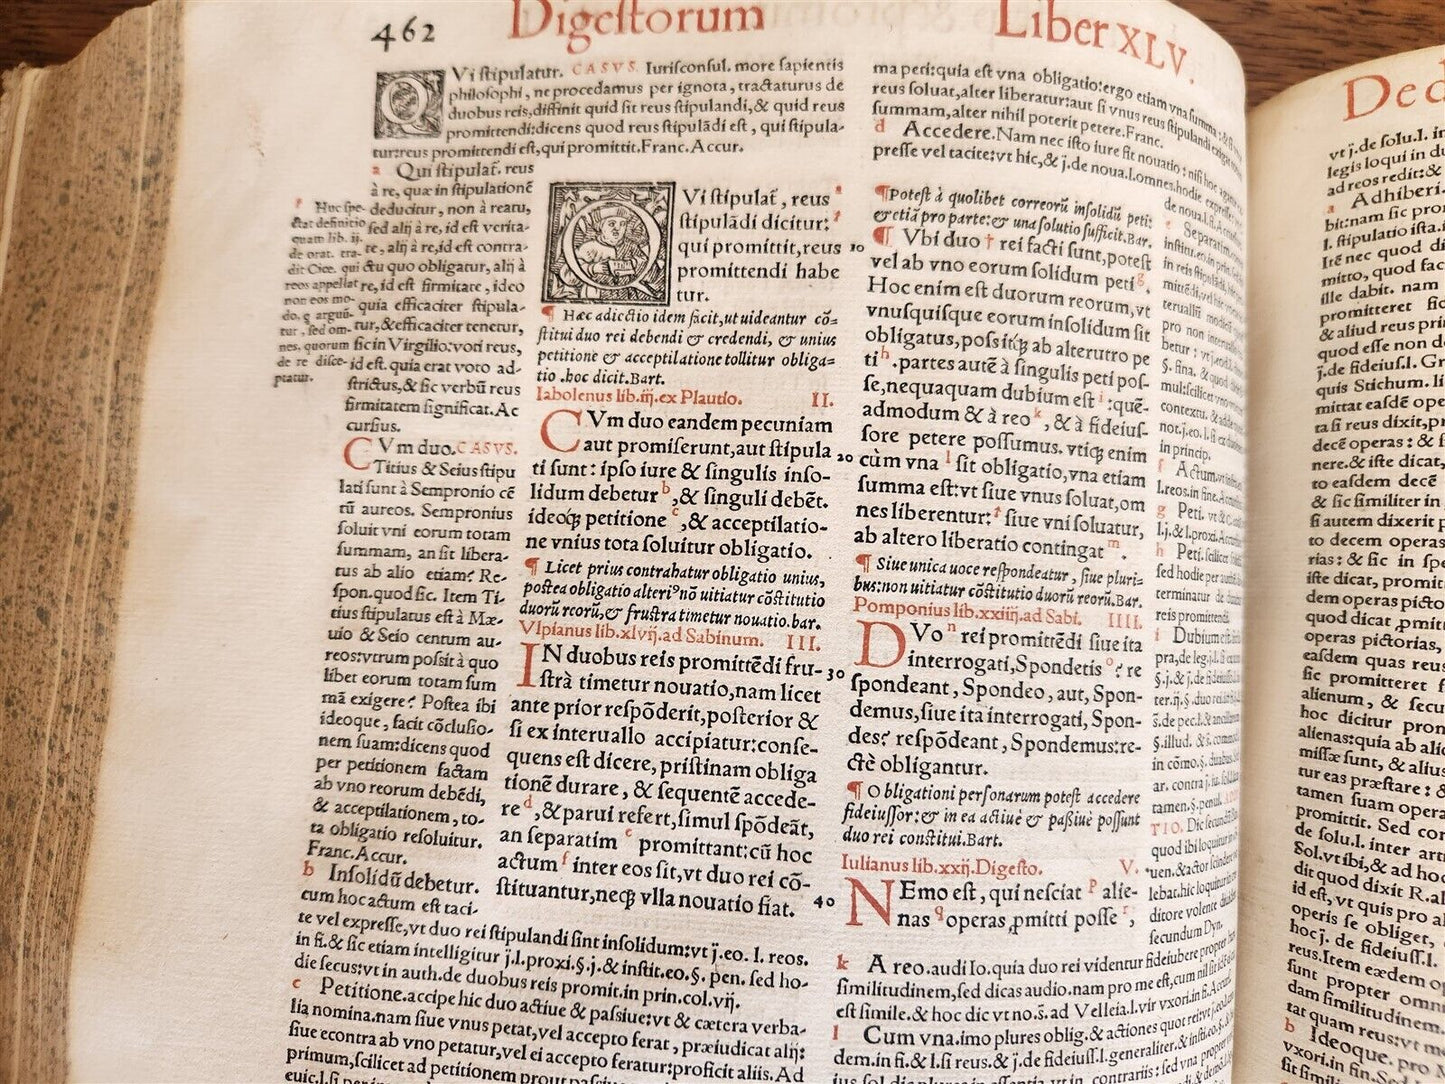 462 Digestorum Liber XLV.
QVi stipulatur. CASVS. Iurisconsul. more sapientis
philosophi, ne procedamus per ignota, tractaturus de
duobus reis, diffinit quid sit reus stipulandi, & quid reus
promittendi: dicens quod reus stipulādi est, qui stipula-
tur: reus promittendi est, qui promittit. Franc. Accur.
a Qui stipulat̃. reus
à re, quæ in stipulationē
deducitur, non à reatu,
sed alij à re, id est verita-
te, alij à re, id est contra-
ctu quo obligatur, alij à
re, id est firmitate, ideo
quia efficaciter stipula-
tur, & efficaciter tenetur,
sic in Virgilio: voti reus,
id est. quia erat voto ad-
strictus, & sic verbū reus
firmitatem significat. Ac
cursius.
Huc spe-
ctat definitio
quam lib. ij.
de orat. tra-
dit Cice. qui
reos appellat
non eos mo-
do, q̃ arguū-
tur, sed om-
nes, quorum
de re disce-
ptatur.
CVm duo. CASVS.
Titius & Seius stipu
lati sunt à Sempronio cē
tū aureos. Sempronius
soluit vni eorum totam
summam, an sit libera-
tus ab alio etiam? Re-
spon. quod sic. Item Ti-
tius stipulatus est à Mæ-
uio & Seio centum au-
reos: vtrum possit à quo
libet eorum totam sum
mā exigere? Postea ibi
ideoque, facit cōclusio-
nem suam: dicens quod
per petitionem factam
ab vno reorum debēdi,
& acceptilationem, to-
ta obligatio resoluitur.
Franc. Accur.
b Insolidū debetur.
cum hoc actum est taci-
te vel expresse, vt duo rei stipulandi sint insolidum: vt j. eo. l. reos.
in fi. & sic etiam intelligitur j. l. proxi. §. j. & instit. eo. §. pen. sed ho-
die secus: vt in auth. de duobus reis promit. in prin. col. vij.
c Petitione. accipe hic duo actiue & passiue: vt & cætera verba-
lia nomina. nam siue vnus petat, vel accepto ferat, præiudicat alij:
siue econtra ab vno petatur, vel ei accepto feratur: proficit aliis. Ad
primum, scilicet ad petitionem
QVi stipulat̃, reus a
stipulādi dicitur: †
qui promittit, reus 10
promittendi habe
tur.
¶ Hæc adiectio idem facit, ut uideantur cō=
stitui duo rei debendi & credendi, & unius
petitione & acceptilatione tollitur obliga=
tio. hoc dicit. Bart.
Iabolenus lib. iij. ex Plautio. II.
CVm duo eandem pecuniam
aut promiserunt, aut stipula 20
ti sunt: ipso iure & singulis inso-
lidum debetur b, & singuli debēt.
ideoq́; petitione c, & acceptilatio-
ne vnius tota soluitur obligatio.
¶ Licet prius contrahatur obligatio unius,
postea obligatio alteri⁹ nō uitiatur cōstitutio
duorū reorū, & frustra timetur nouatio. bar.
Vlpianus lib. xlvij. ad Sabinum. III.
IN duobus reis promittēdi fru- 30
strà timetur nouatio, nam licet
ante prior respōderit, posterior &
si ex interuallo accipiatur: conse-
quens est dicere, pristinam obliga
tionē durare, & sequentē accede-
re d, & parui refert, simul spōdeāt,
an separatim e promittant: cū hoc
actum f inter eos sit, vt duo rei cō-
stituantur, neq́; vlla nouatio fiat. 40
ma peri: quia est vna obligatio: ergo etiam vna summa:
reus soluat, alter liberatur: aut si vnus reus stipulandi exiget
summam, alter nihil poterit petere. Franc.
d Accedere. Nam nec isto iure fit nouatio: nisi hoc
presse vel tacite: vt hic, & j. de noua. l. omnes. hodie expresse.
de noua. l. fi.
¶ Potest à quolibet correorū insolidū peti:
& etiā pro parte: & una solutio sufficit. Bar.
¶ Vbi duo † rei facti sunt, potest
vel ab vno eorum solidum peti g.
Hoc enim est duorum reorum, vt
vnusquisque eorum insolidum sit
obligatus, possitq́; ab alterutro pe
ti h. partes autē à singulis peti pos-
se, nequaquam dubium est i: quē-
admodum & à reo k, & à fideius-
sore petere possumus. vtiq́; enim
cùm vna l sit obligatio, vna etiam
summa est: vt siue vnus soluat, om
nes liberentur: † siue vni soluatur,
ab altero liberatio contingat m.
¶ Siue unica uoce respondeatur, siue pluri-
bus: non uitiatur cōstitutio duorū reorū. Bar.
Pomponius lib. xxiiij. ad Sabi. IIII.
DVo n rei promittēdi siue ita
interrogati, Spondetis o? re
spondeant, Spondeo, aut, Spon-
demus, siue ita interrogati, Spon-
des? respōdeant, Spondemus: re-
ctè obligantur.
¶ Obligationi personarum potest accedere
fideiussor: & in ea actiuè & passiuè possunt
duo rei constitui. Bart.
Iulianus lib. xxij. Digesto. V.
NEmo est, qui nesciat p alie-
nas q operas ꝓmitti posse r,
k A reo. audi Io. quia duo rei videntur fideiubere propter
similitudinem, sed dicas audio. nam pro me est, cum nil
est simile. & hoc dic vt no. s. ad Velleia. l. vir vxori. in fi. Accur.
l Cum vna. imo plures oblig. & actiones quot rei: vt j. eo.
dem. in fi. & l. si reus. & j. de fideiuss. l. generaliter. & insti. eo.
e Separatim
institu. eo. in prin.
in reis
f Actum. vt infra
l. reos. in fine. Accur.
g Peti. vt
l. j. & l. proxi. Accur.
h Peti. scilicet
sed hodie per
terminatur de duobus
reis promittendi.
i Dubium est.
De d
vt j. de solu. l. in
legis loqui in du
ad reos redit: &
a Adhiberi.
bit: nam sic pro
l. stipulatio ista.
Itē nec quod di
mitto, quod fac
ille dabit. nam
promitteret fic
& aliud reus prin
quod esse non d
j. de fideius. l. Gr
quis Stichum. li
mittat easdē ope
ta si reus dixit, pr
decē operas: & f
nere. & iste dicat,
to easdem decē
& sic similiter in
si autem dixerit p
to decem operas
rias: & sic in spe
iste dicat, promit
dem operas picto
quod dicat ꝓmit
operas pictorias,
easdem quas reus
sic promitteret f
alienum, & secu
hoc dicitur pron
alienas: quia ab alio
missæ sunt, & alius
tur eas præstare: &
tamen suam opera
promittit. Sed con
de solu. l. inter arti
Sol. vt ibi, & ad hoc
dit quod dixit R. al
id est, vt quis pro al
operis se obliget,
hoc j. de fideiuss. l.
reus. Item eædem o
sunt propter omni
dam similitudinem.
tat quam reus: vt m
b Ideoque. pro M
vxori. in fin. S